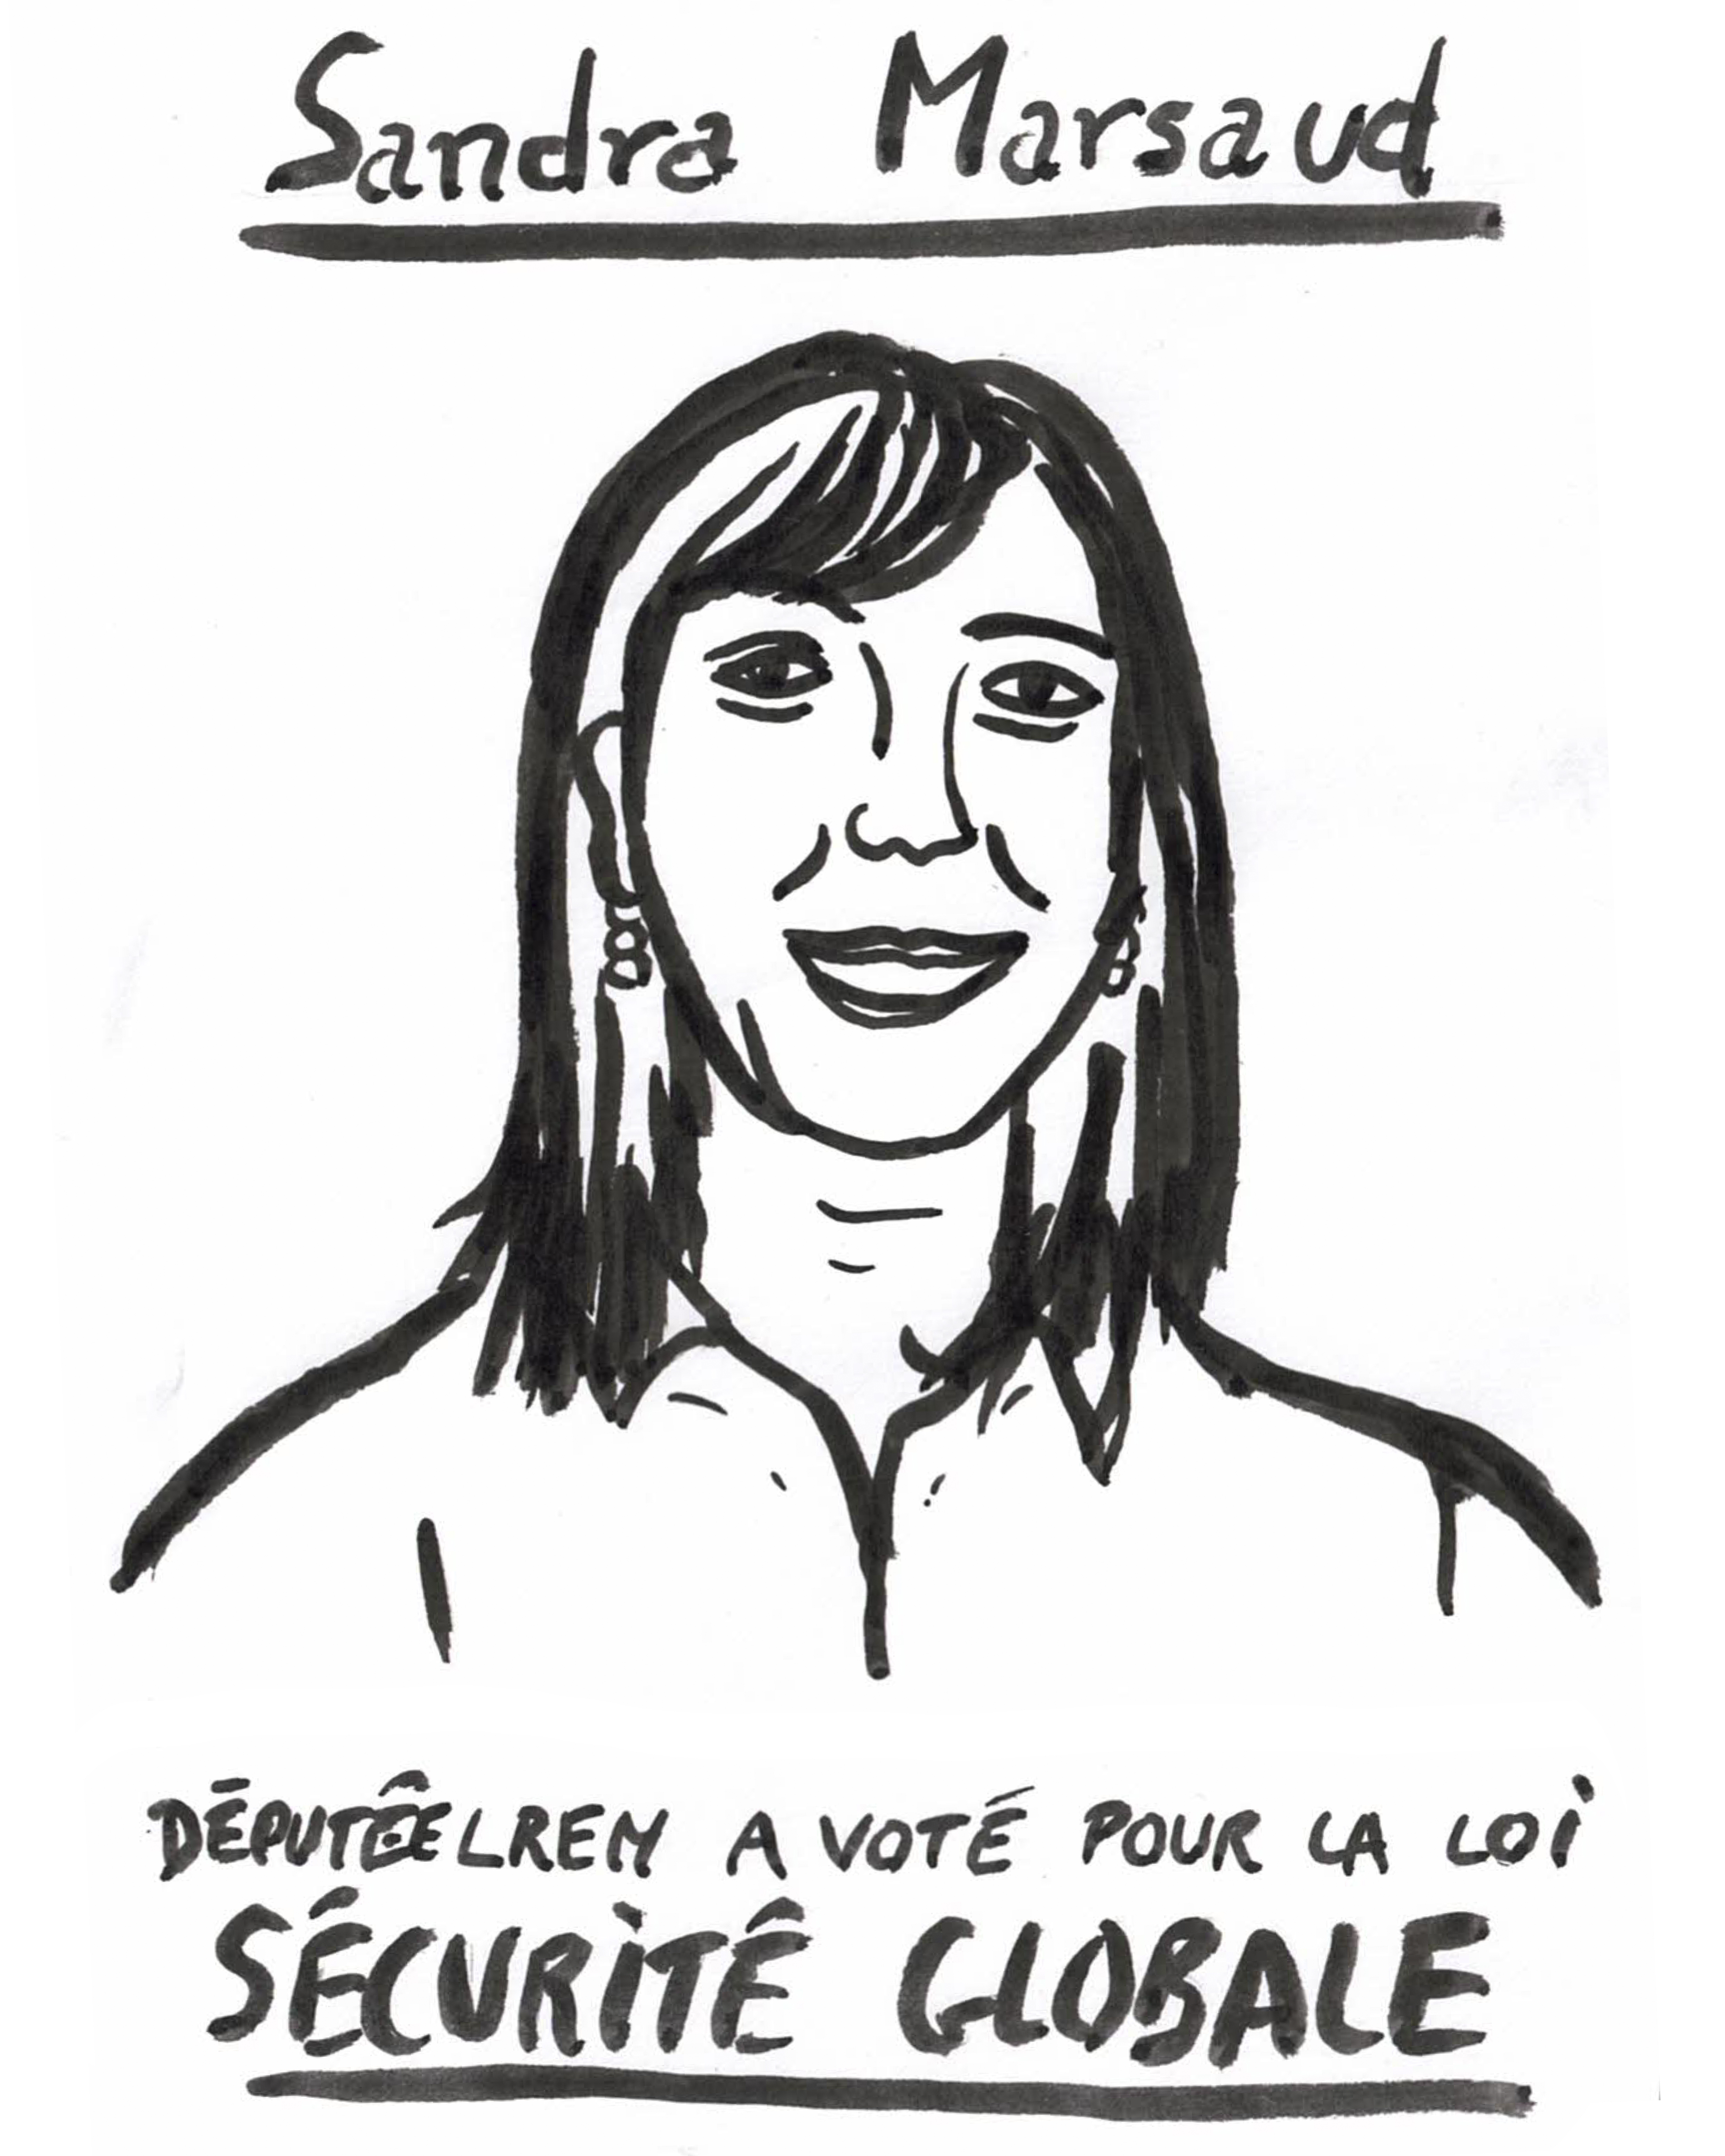 Sandra Marsaud
DÉPUTÉE LREM A VOTÉ POUR LA LOI
SÉCURITÉ GLOBALE